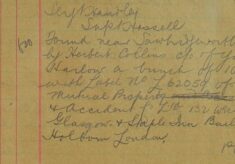 Sergt Hawley
Inspt Hassell
Found near Sawbridgeworth
by Herbert Collins c/o
Harlow a bunch of
with Label No 62039 of
Mutual Property
& Accident
Glasgow & Staple Inn
Holborn London